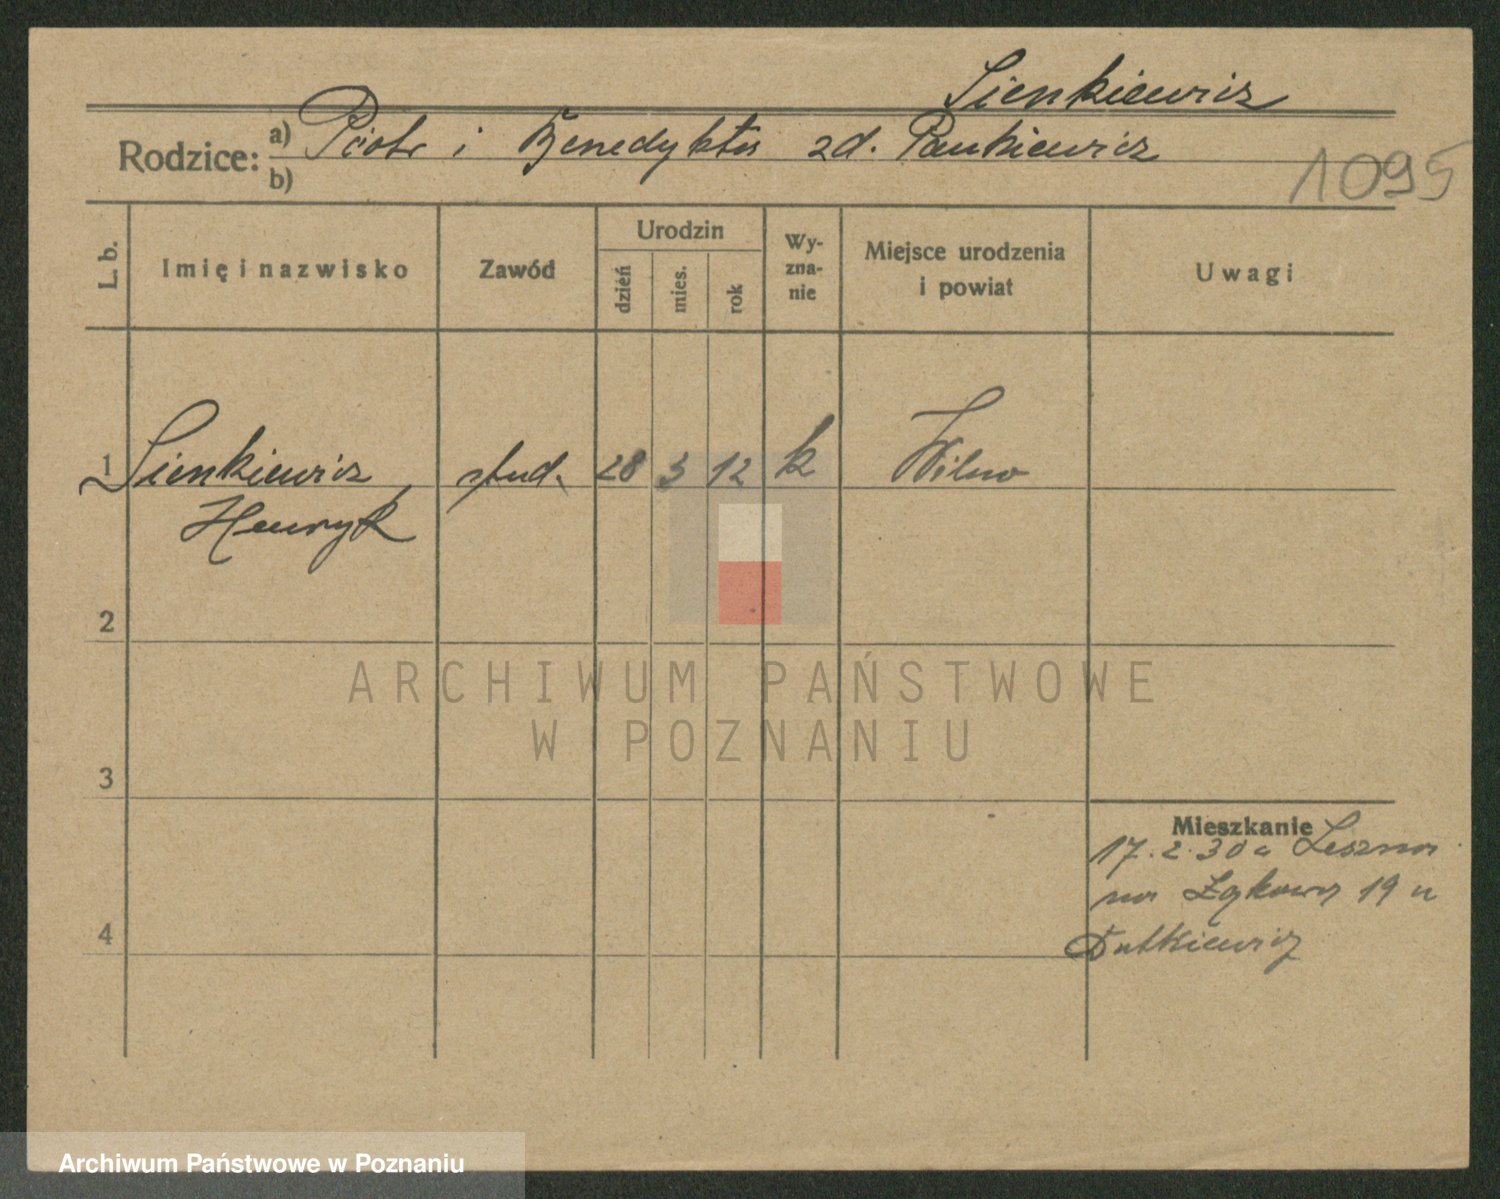 Sienkiewicz
Rodzice: a) Piotr i Benedykta zd. Pankiewicz
b)
1095
L. b. Imię i nazwisko Zawód Urodzin dzień mies. rok Wy-zna-nie Miejsce urodzenia i powiat Uwagi
1 Sienkiewicz stud. 28 3 12 k Wilno
Henryk
2
ARCHIWUM PAŃSTWOWE
W POZNANIU
3
Mieszkanie
17.2.30 Leszna
na Łąkowa 19 u
4
Dutkiewicz
Archiwum Państwowe w Poznaniu